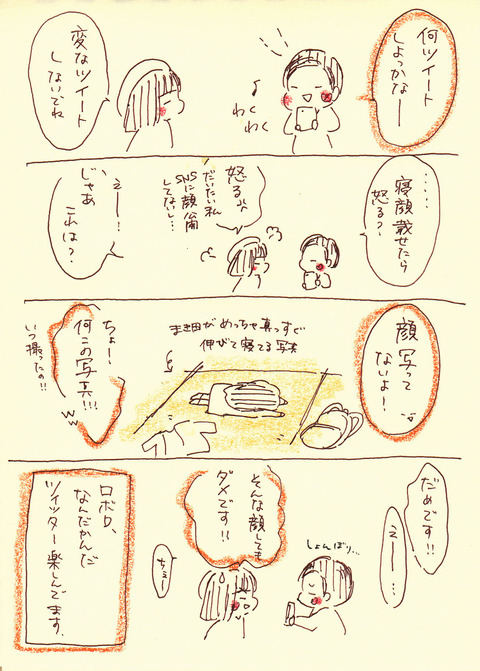 何ツイート
しよっかなー
♪
わく
わく
変なツイート
しないでね
……
寝顔載せたら
怒る?
怒るよ
だいたい私
SNSに顔公開
してないし…
えー…!
じゃあ
これは?
顔写って
ないよー!
まき田がめっちゃ真っすぐ
伸びて寝てる写真
ちょー!
何この写真!!!
いつ撮ったの!!
だめです!!
えー…
しょんぼり…
そんな顔しても
ダメです!!
ちぇー
ロボロ、
なんだかんだ
ツイッター楽しんでます.